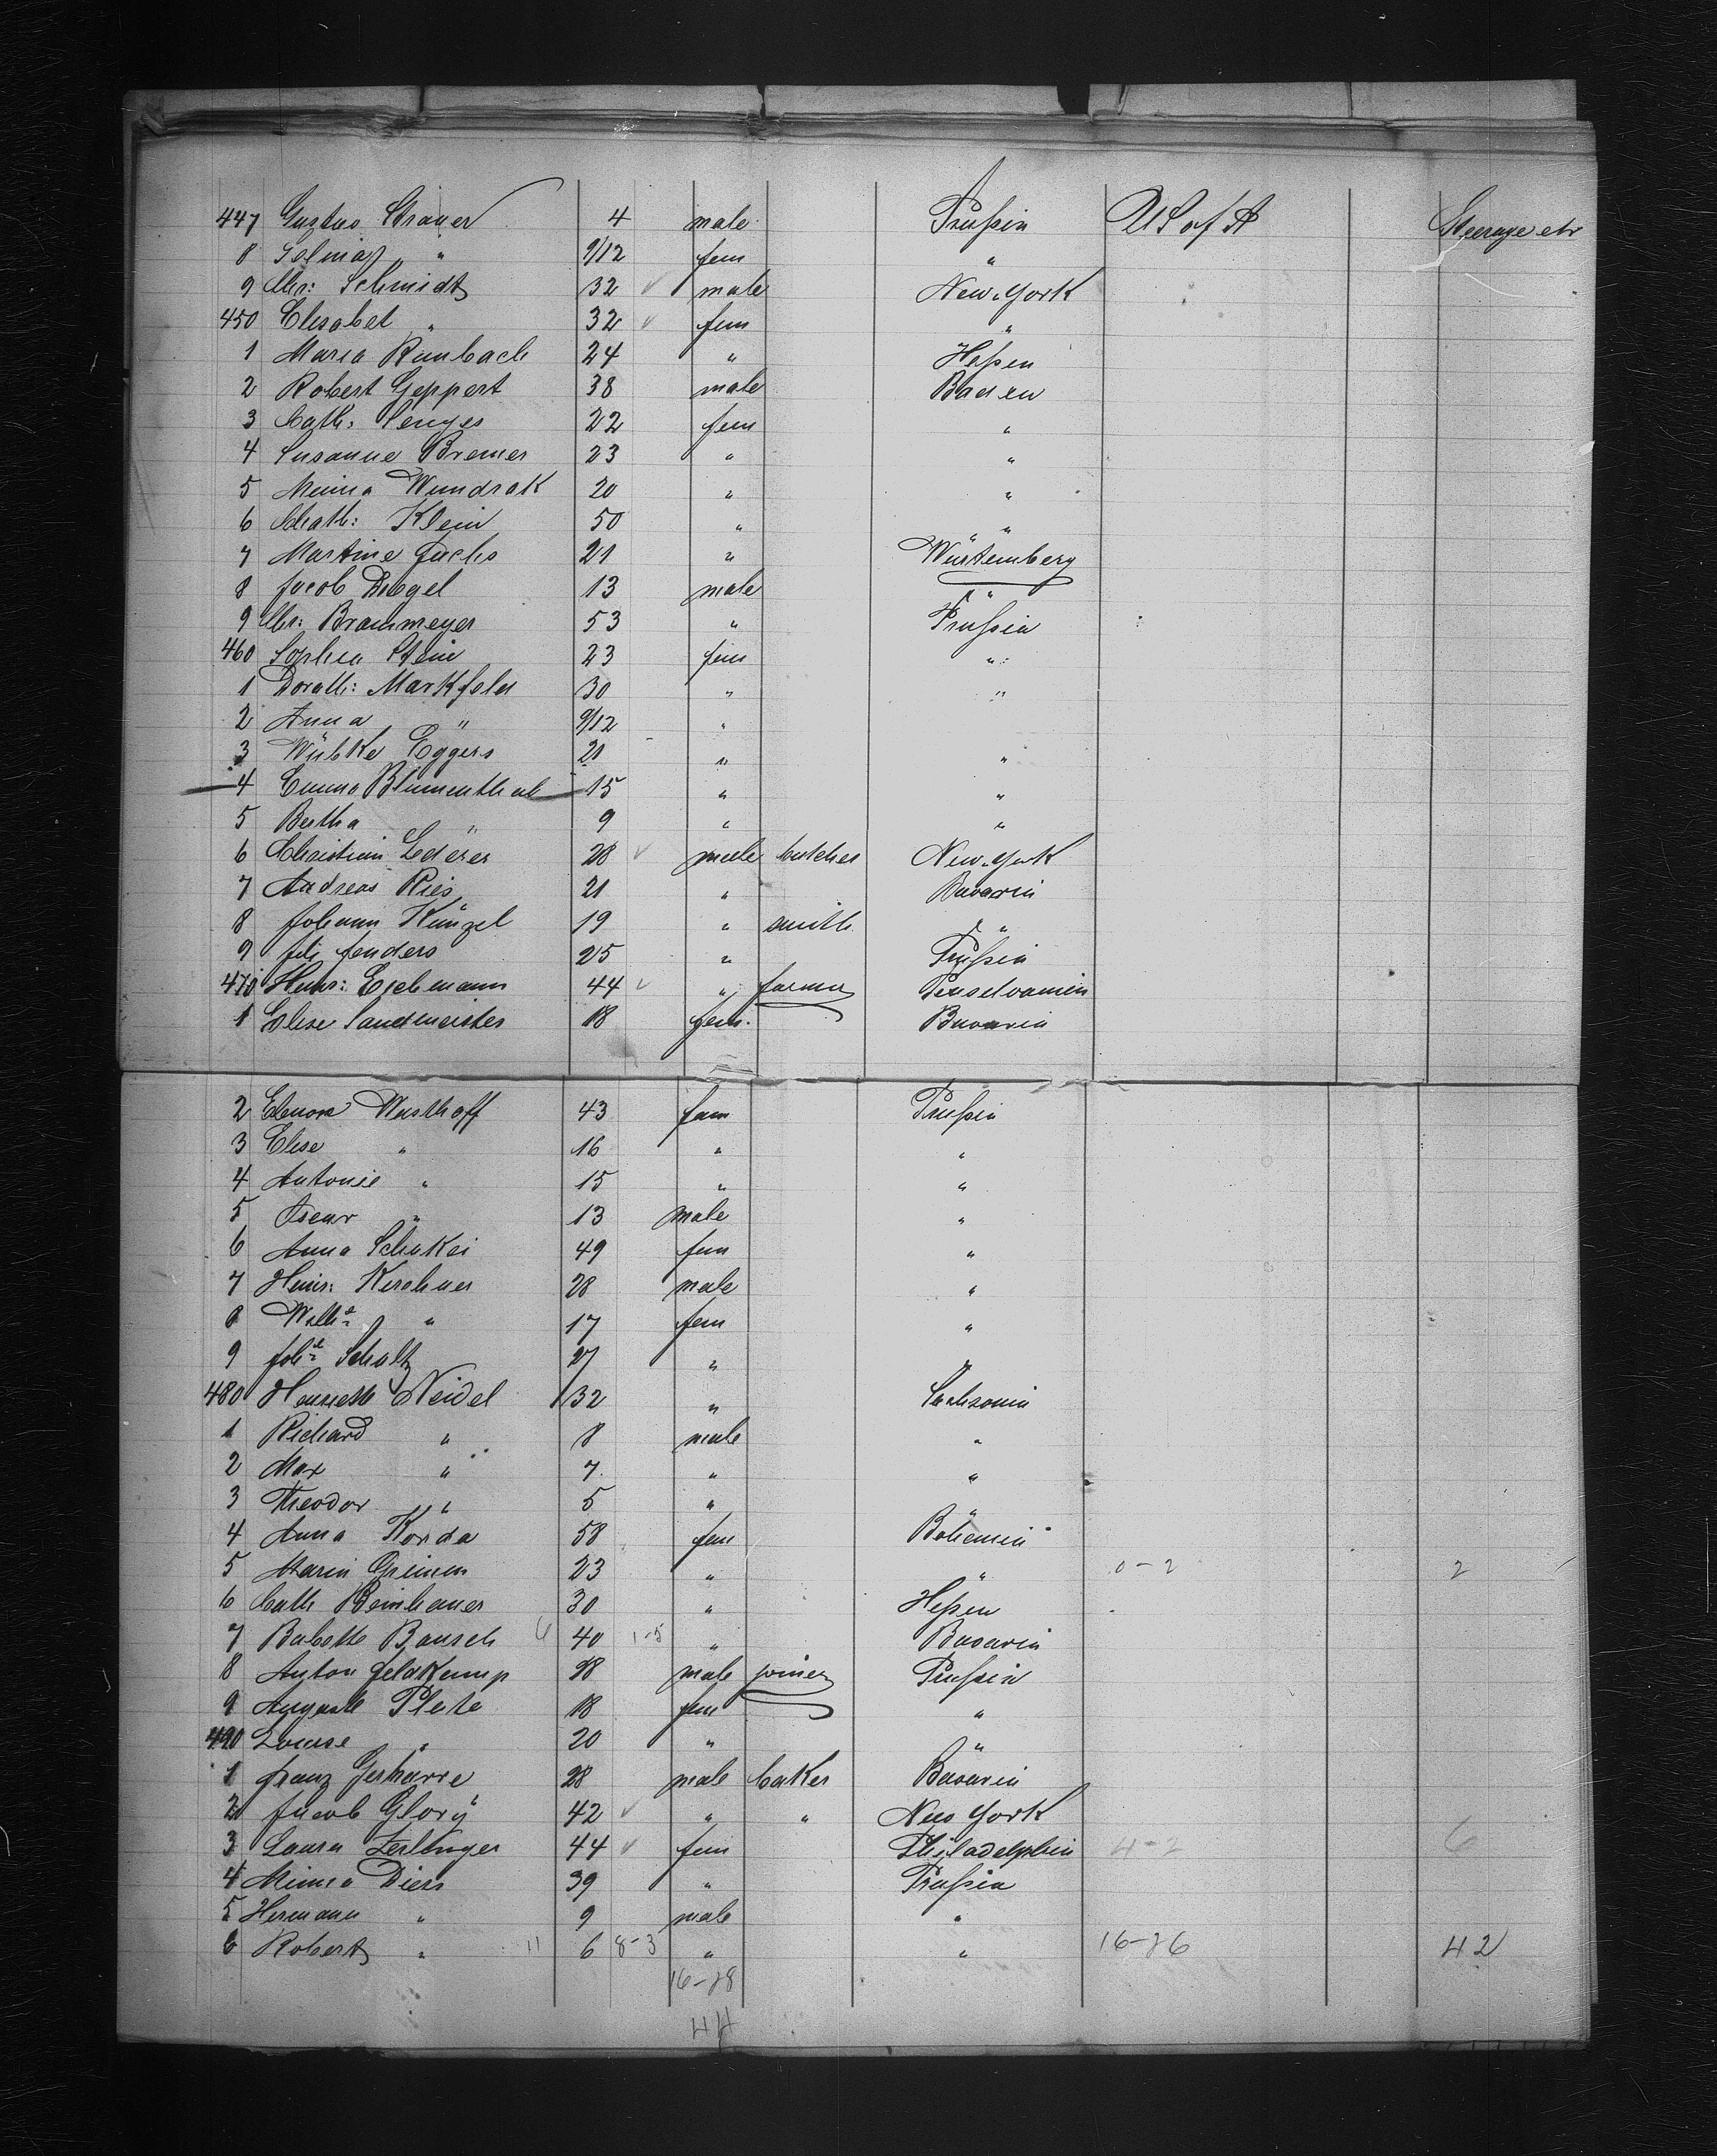 447 Gustav Strauer 4 male Prußia US of A Steerage etr
8 Selma " 9/12 fem "
9 Chr: Schmidt 32 male New-York
450 Elisabet " 32 fem "
1 Maria Rumbach 24 " Heßen
2 Robert Geppert 38 male Baden
3 Cath: Senges 22 fem "
4 Susanne Bremer 23 " "
5 Minna Wundrak 20 " "
6 Cath: Klein 50 " "
7 Martine Fuchs 21 " Würtemberg
8 Jacob Diegel 13 male "
9 Chr: Brammeyer 53 " Prußia
460 Sophia Stein 23 fem "
1 Doroth: Markfeld 30 " "
2 Anna " 9/12 "
3 Wübke Eggers 21 " "
4 Emma Blumenthal 15 " "
5 Bertha " 9 " "
6 Christian Lederer 28 male butcher New-York
7 Andreas Ries 21 " Bavaria
8 Johann Künzel 19 " smith "
9 Joh Jenders 25 " Prußia
470 Heinr: Eschmann 44 " farmer Penselvanien
1 Elise Sandmeister 18 fem. Bavaria
2 Elenore Westhoff 43 fem Prußia
3 Elise " 16 " "
4 Antonie " 15 " "
5 Oscar " 13 male "
6 Anna Schukei 49 fem "
7 Heinr: Kirchner 28 male "
8 Wilh e " 17 fem "
9 Joh e Schultz 27 " "
480 Henriette Neidel 32 " Sachsonia
1 Richard " 8 male "
2 Max " 7 " "
3 Theodor " 5 "
4 Anna Korda 58 fem Bohemia
5 Maria Grimm 23 " " 0-2 2
6 Cath Beinhauer 30 " Heßen
7 Babette Bausch 6 40 1-5 " Bavaria
8 Anton Feldkamp 28 male joiner Prußia
9 Auguste Plate 18 fem "
490 Louise " 20 " "
1 Franz Gerharre 28 male baker Bavaria
2 Jacob Glory 42 " " New York
3 Laura Zerlinger 44 fem Philadelphia 4-2 6
4 Minna Diers 39 " Prußia
5 Hermann " 9 male "
6 Robert " 11 6 8-3 " " 16-26 42
16-28
44